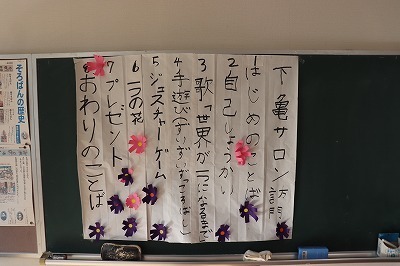 下亀サロン
1はじめのことば
2自己しょうかい
3歌「世界が一つになるまで」
4手遊び(ずいずいずっころばし)
5ジェスチャーゲーム
6一つの花
7プレゼント
8おわりのことば
そろばんの歴史